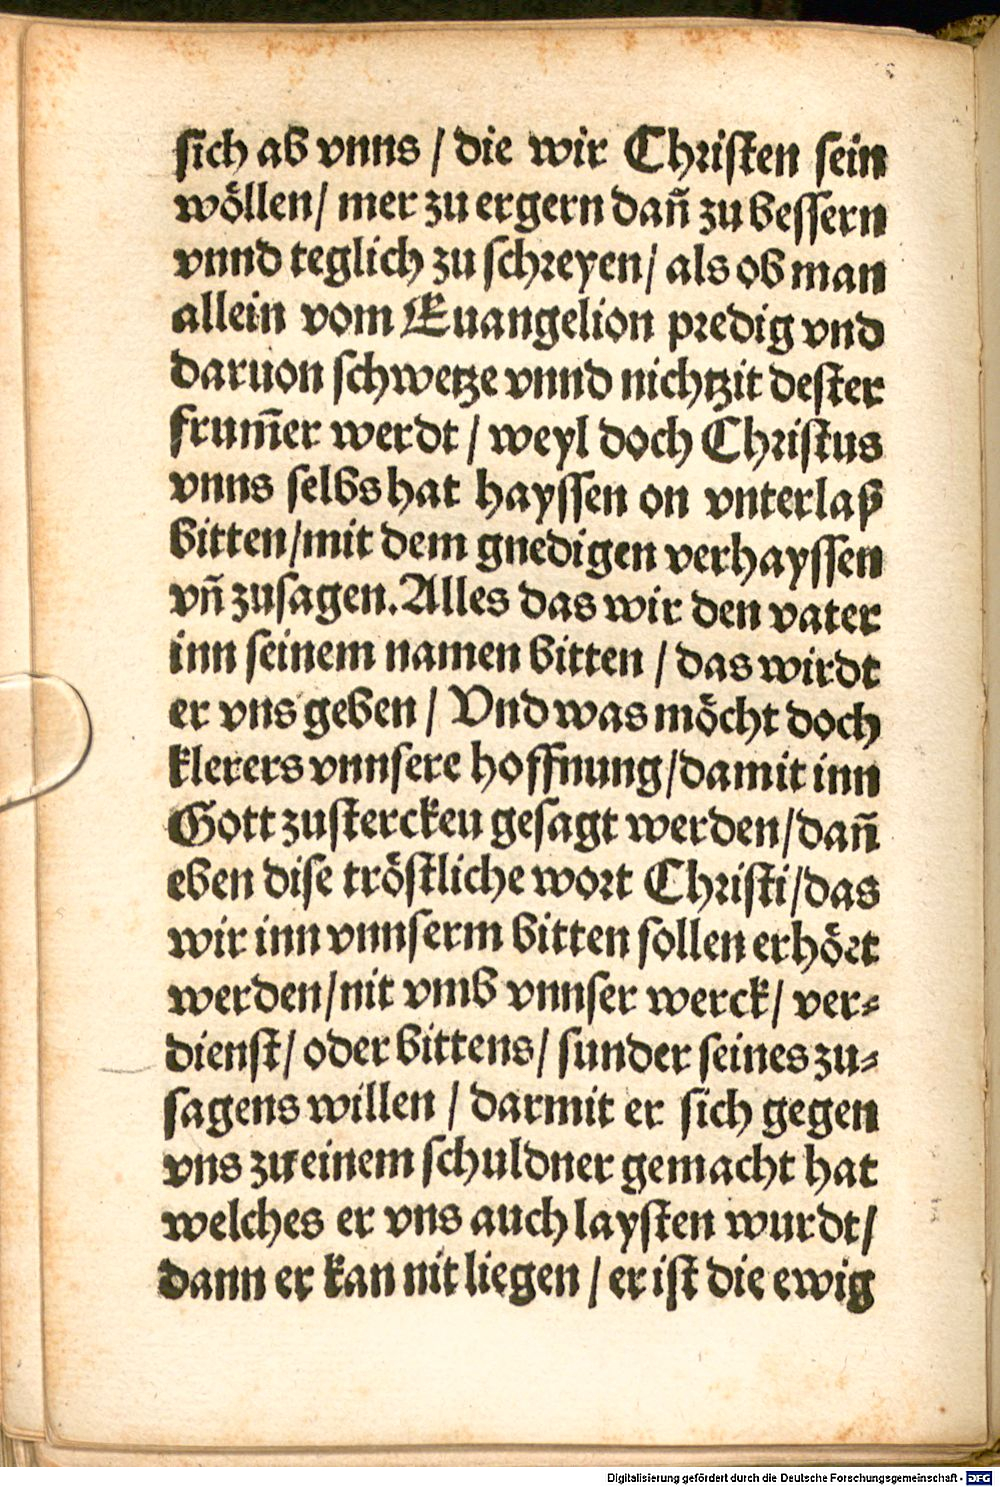 sich ab vnns / die wir Christen sein
wöllen / mer zu ergern dañ zu bessern
vnnd teglich zu schreyen / als ob man
allein vom Euangelion predig vnd
daruon schwetze vnnd nichtzit dester
frum̄er werdt / weyl doch Christus
vnns selbs hat hayssen on vnterlaß
bitten / mit dem gnedigen verhayssen
vñ zusagen. Alles das wir den vater
inn seinem namen bitten / das wirdt
er vns geben / Vnd was möcht doch
klerers vnnsere hoffnung / damit inn
Gott zustercken gesagt werden / dañ
eben dise tröstliche wort Christi / das
wir inn vnnserm bitten sollen erhört
werden / nit vmb vnnser werck / ver⸗
dienst / oder bittens / sunder seines zu⸗
sagens willen / darmit er sich gegen
vns zu einem schuldner gemacht hat
welches er vns auch laysten wurdt /
dann er kan nit liegen / er ist die ewig
Digitalisierung gefördert durch die Deutsche Forschungsgemeinschaft - DFG